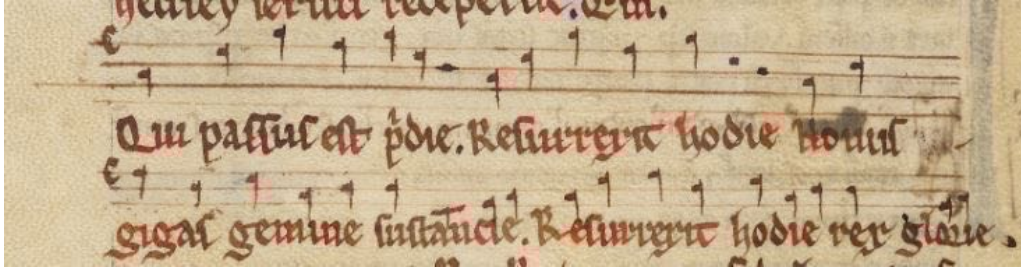 Qui passus est p̄die. Resurrexit hodie Nouus
gigas gemine sustācie. Resurrexit hodie rex glorie.